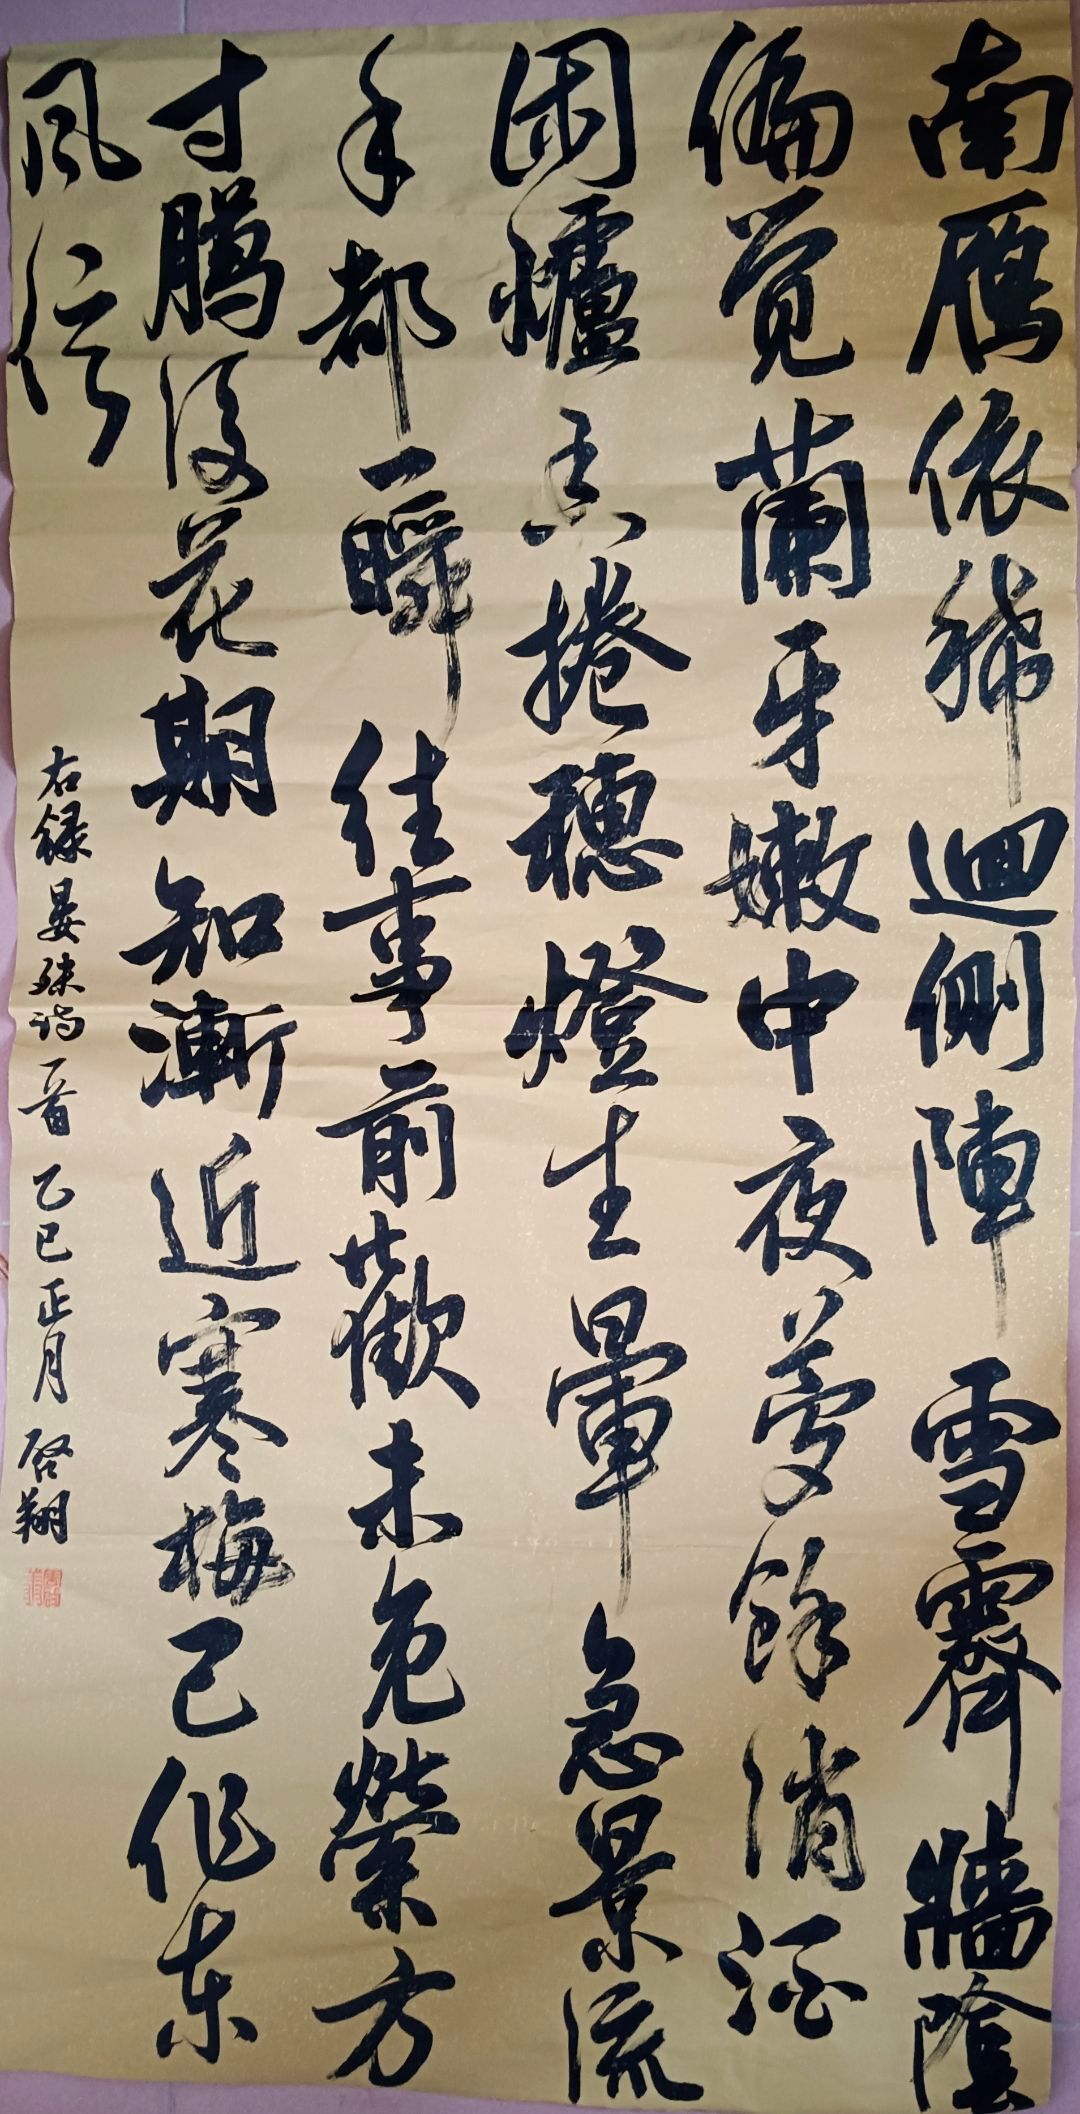 南雁依稀迴側陣雪霽牆陰
偏觉蘭牙嫩中夜夢餘消酒
困爐香捲穗燈生暈急景流
年都一瞬往事前歡未免縈方
寸腊後花期知漸近寒梅已作东
風信
右録晏殊詞一首乙巳正月啓翔